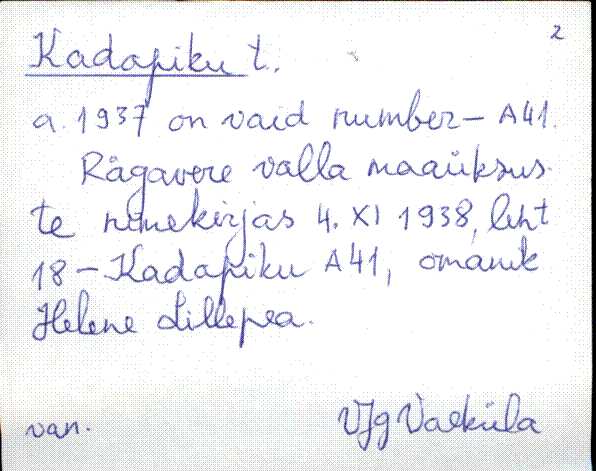 2
Kadapiku t.
a. 1937 on vaid number – A41.
Rägavere valla maaüksus-
te nimekirjas 4. XI 1938, leht
18 – Kadapiku A41, omanik
Helene Lillepea.
van. VJg Vaeküla